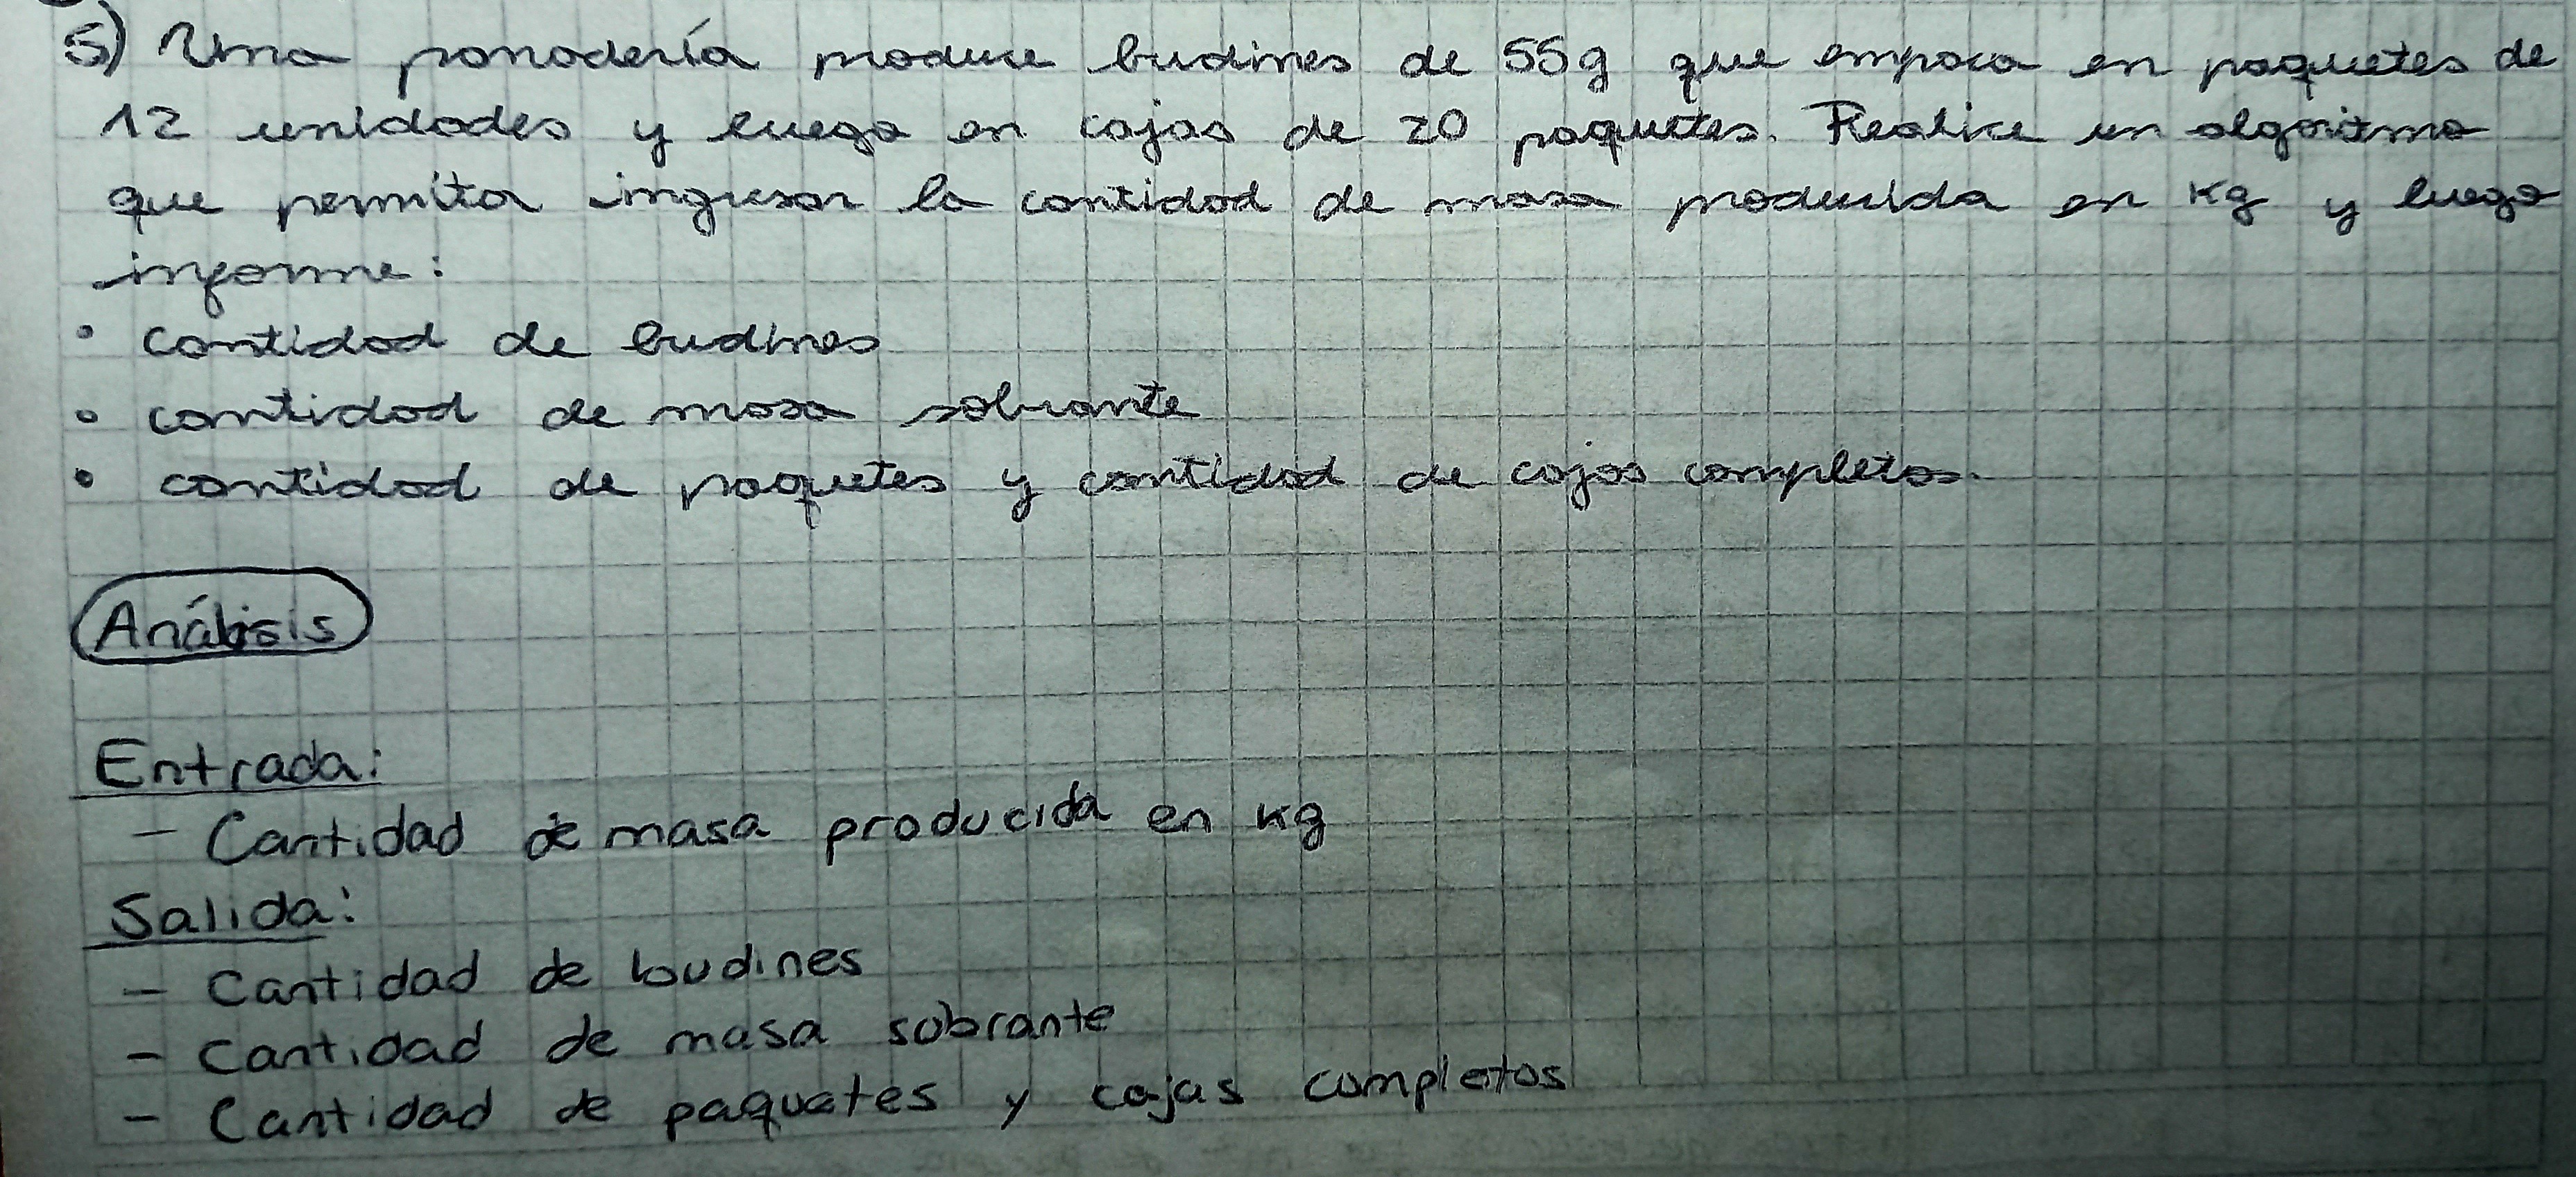 5) Una panadería produce budines de 55g que empaca en paquetes de
12 unidades y luego en cajas de 20 paquetes. Realice un algoritmo
que permita ingresar la cantidad de masa producida en Kg y luego
informe:
• cantidad de budines
• cantidad de masa sobrante
• cantidad de paquetes y cantidad de cajas completas.
Análisis
Entrada:
- Cantidad de masa producida en kg
Salida:
- Cantidad de budines
- Cantidad de masa sobrante
- Cantidad de paquetes y cajas completos